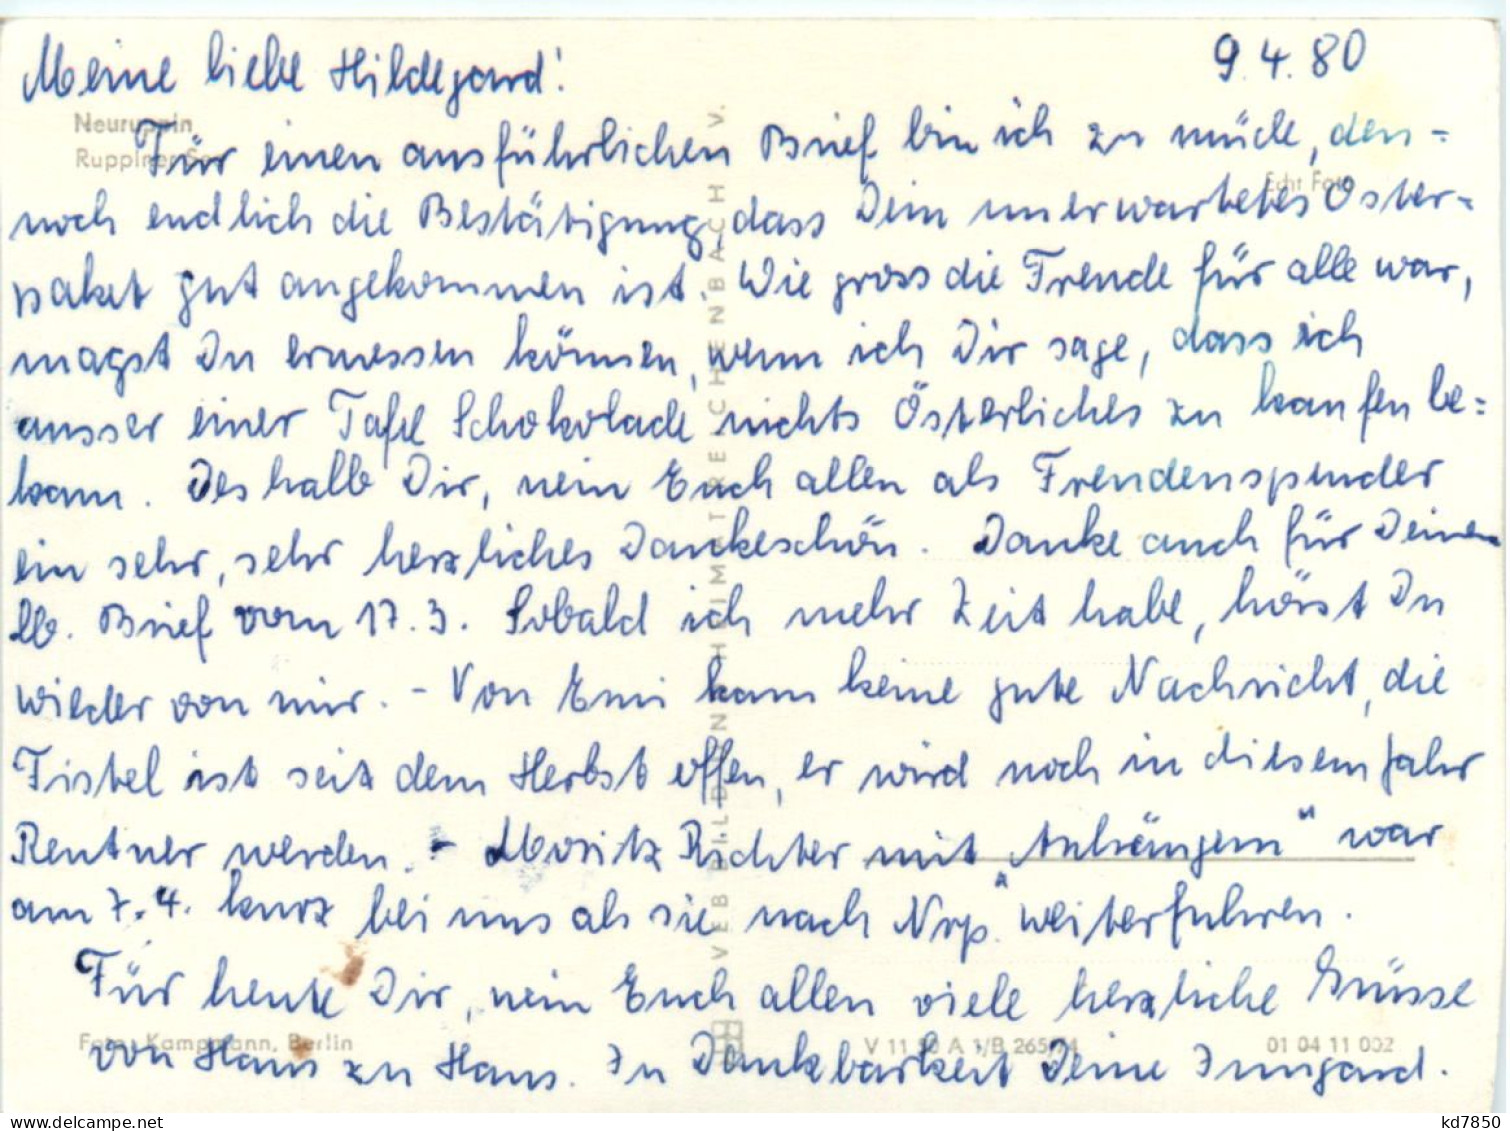 Meine liebe Hildegard!
9.4.80
Neuruppin
Ruppiner See
Echt Foto
Für einen ausführlichen Brief bin ich zu müde, den-
noch endlich die Bestätigung, dass Dein unerwartetes Oster-
paket gut angekommen ist. Wie gross die Freude für alle war,
magst Du ermessen können, wenn ich Dir sage, dass ich
ausser einer Tafel Schokolade nichts Österliches zu kaufen be-
kam. Deshalb Dir, nein Euch allen als Freudenspender
ein sehr, sehr herzliches Dankeschön. Danke auch für Deinen
lb. Brief vom 17.3. Sobald ich mehr Zeit habe, hörst Du
wieder von mir. - Von Emi kam keine gute Nachricht, die
Fistel ist seit dem Herbst offen, er wird noch in diesem Jahr
Rentner werden. - Moritz Richter mit „Anhängern" war
am 7.4. kurz bei uns als sie nach Nrp. weiterfuhren.
Für heute Dir, nein Euch allen viele herzliche Grüsse
von Haus zu Haus. In Dankbarkeit Deine Irmgard.
VEB BILD UND HEIMAT REICHENBACH I. V.
Foto: Kampmann, Berlin
V 11 50 A 1/B 265/74
01 04 11 002
www.delcampe.net
kd7850